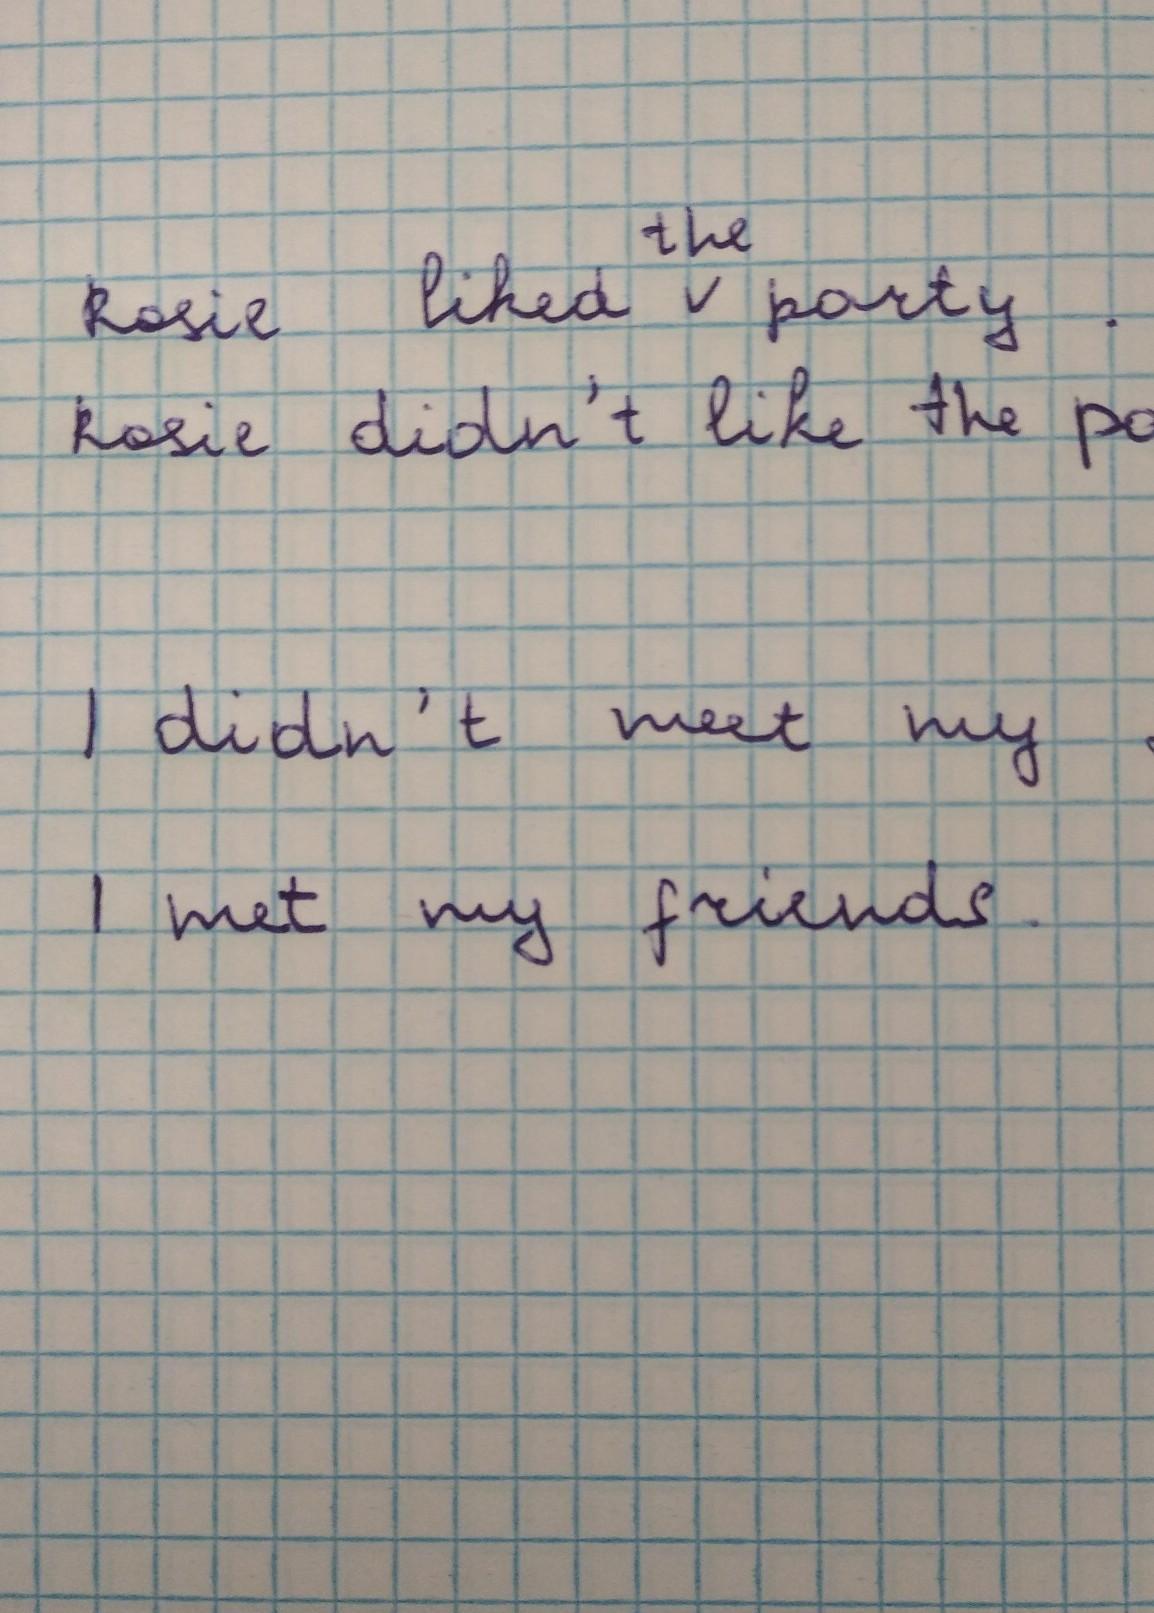 the
Rosie liked v party .
Rosie didn't like the pa
I didn't meet my
I met my friends.